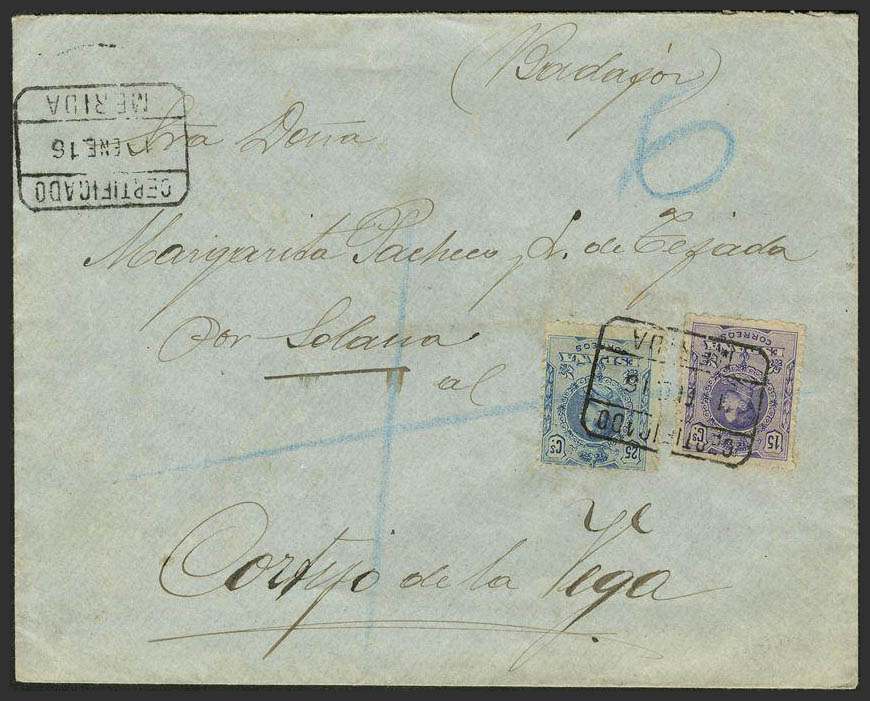 (Badajóz)
6
CERTIFICADO
ENE.16
MERIDA
Sra Doña
Margarita Pacheco y L. de Tejada
Por Solana
al
Cortijo de la Vega
CORREOS
15 Cs
CORREOS
25 Cs
CERTIFICADO
16
MERIDA